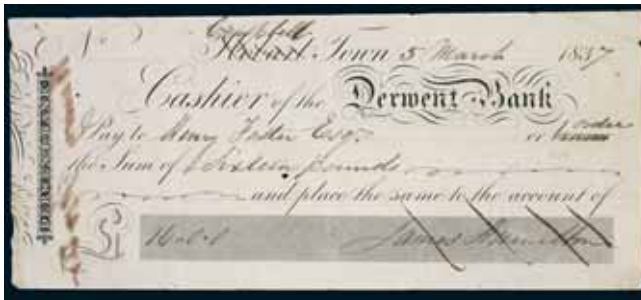 Campbell
No Hobart Town 5 March 1837
Cashier of the Derwent Bank
Pay to Henry Foster Esqr. or bearer order
the Sum of Sixteen pounds
and place the same to the account of
£ 16.0.0 James Hamilton
DERWENT BANK